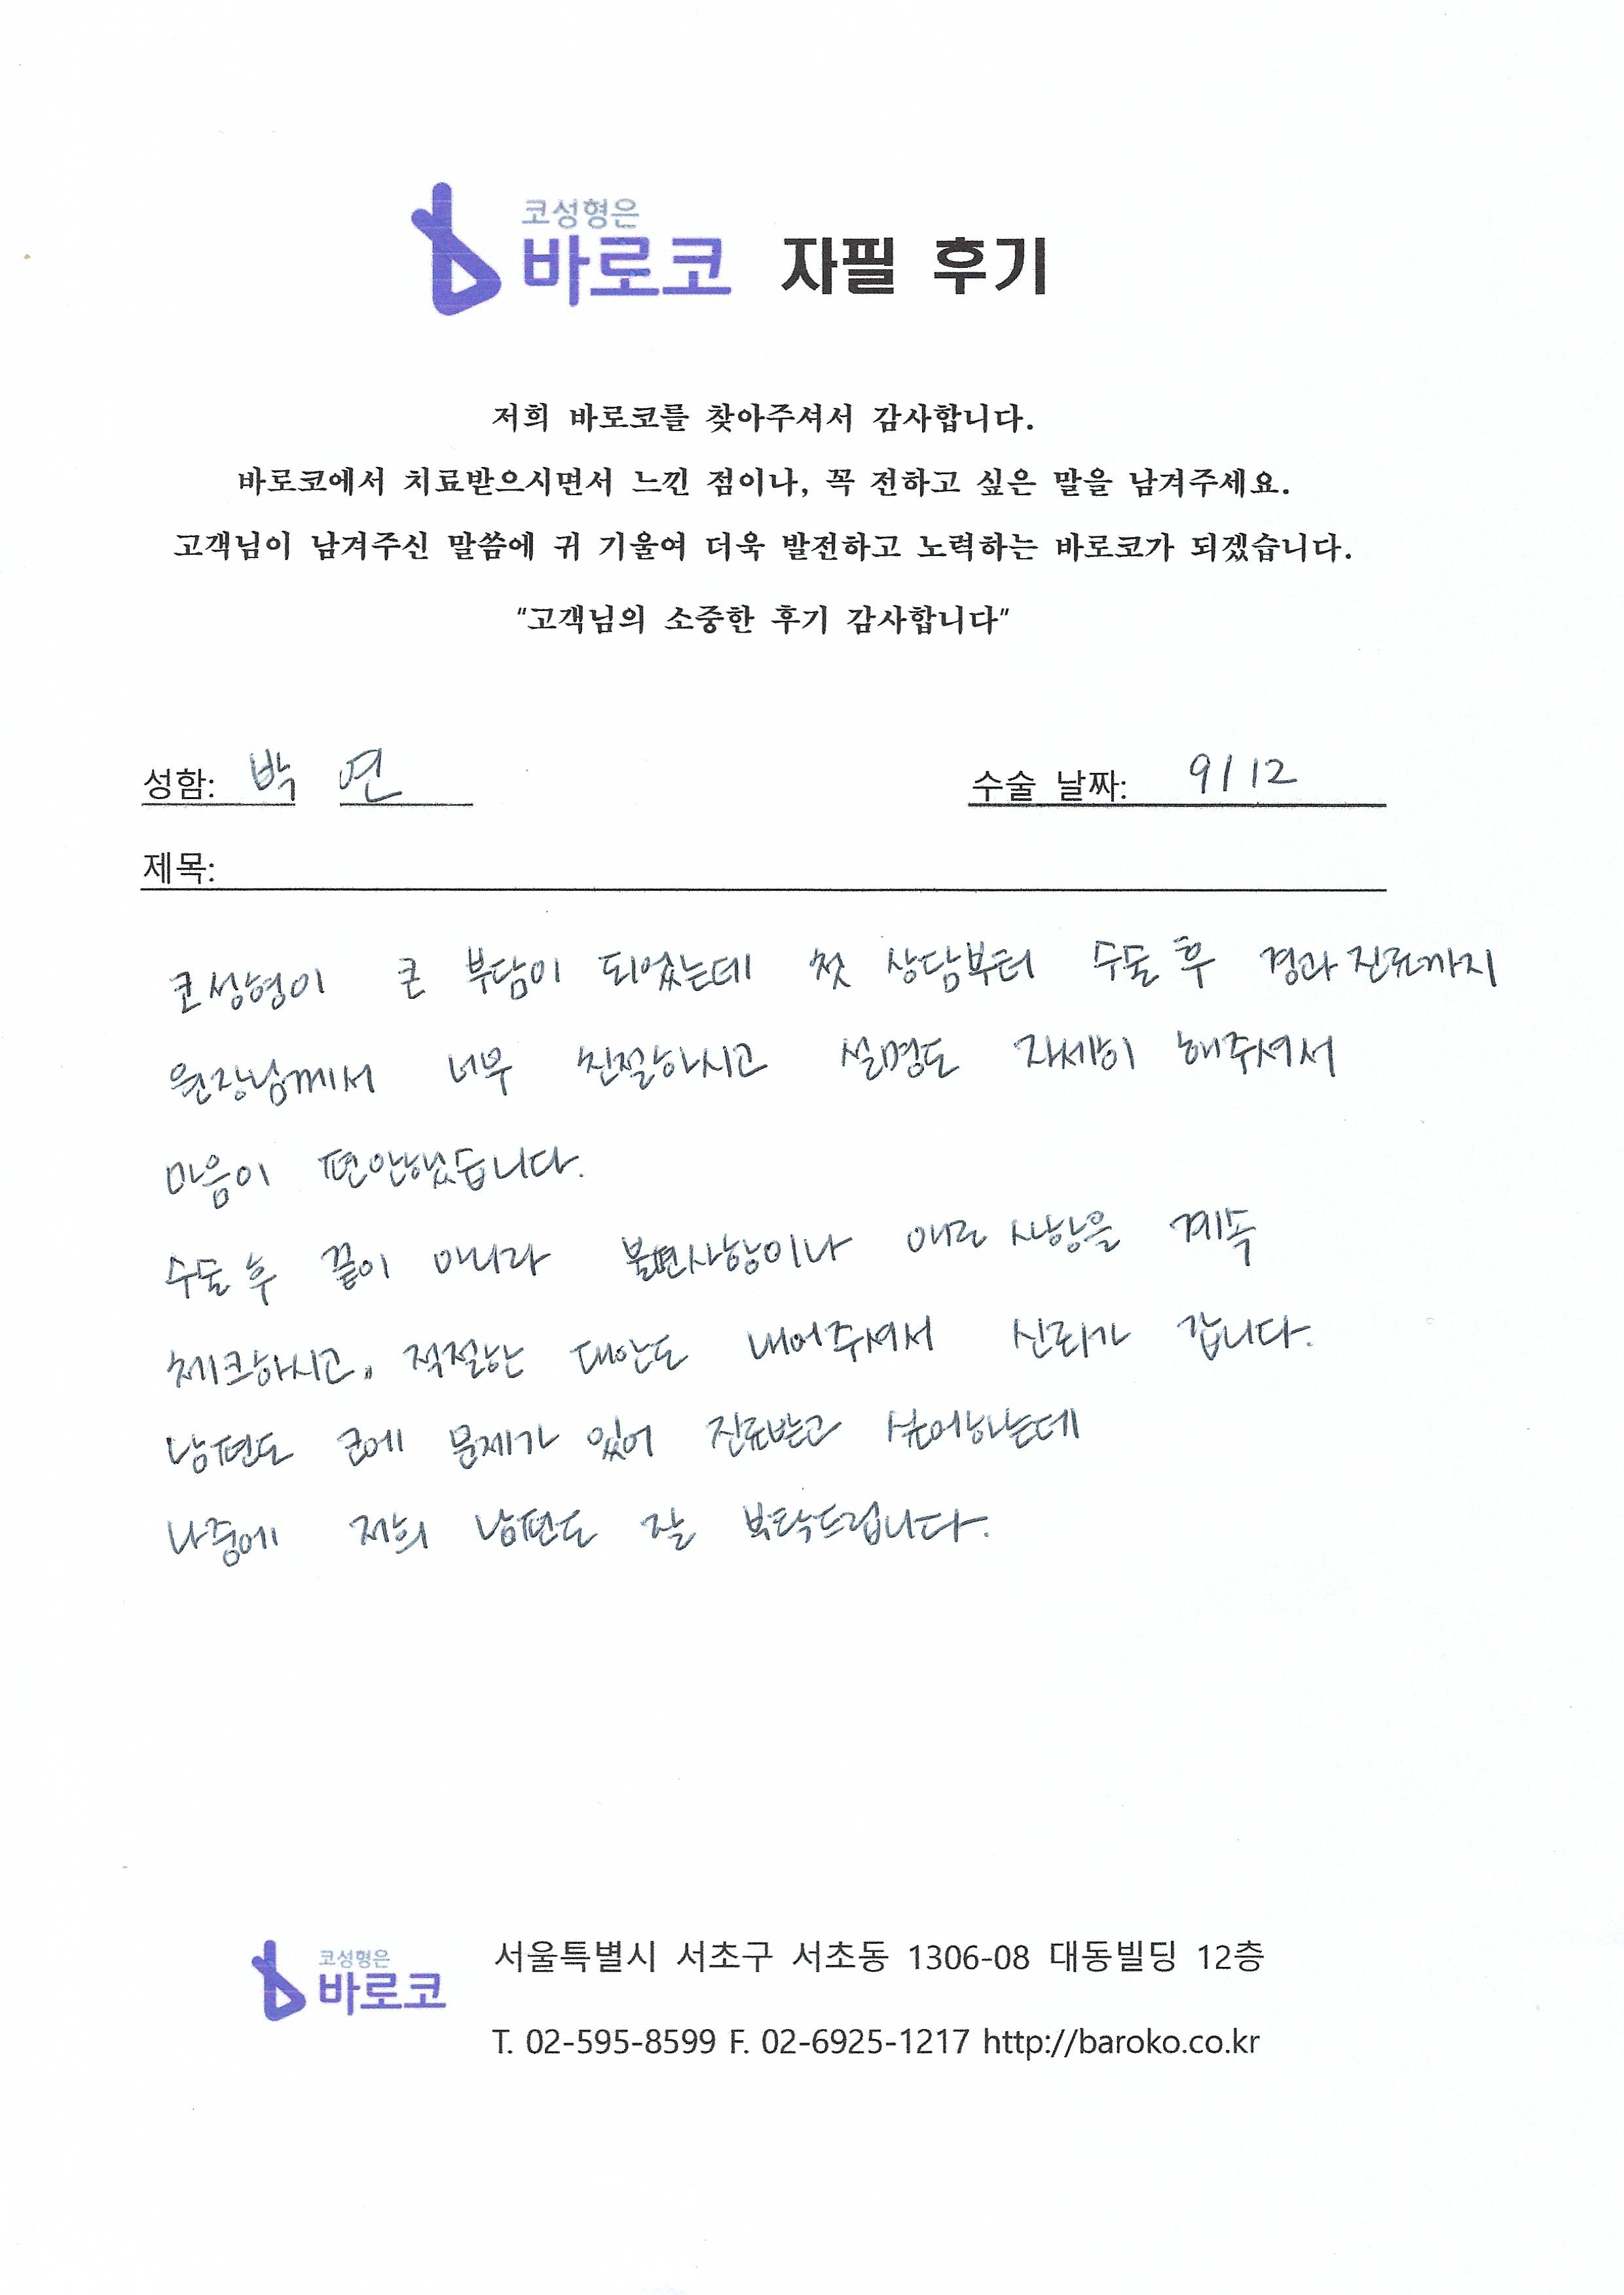 코성형은
바로코 자필 후기
저희 바로코를 찾아주셔서 감사합니다.
바로코에서 치료받으시면서 느낀 점이나, 꼭 전하고 싶은 말을 남겨주세요.
고객님이 남겨주신 말씀에 귀 기울여 더욱 발전하고 노력하는 바로코가 되겠습니다.
"고객님의 소중한 후기 감사합니다"
성함: 박 연 수술 날짜: 9/12
제목:
코성형이 큰 부담이 되었는데 첫 상담부터 수술 후 경과 진료까지
원장님께서 너무 친절하시고 설명도 자세히 해주셔서
마음이 편안했습니다.
수술 후 끝이 아니라 불편사항이나 애로 사항을 계속
체크하시고, 적절한 대안도 내어주셔서 신뢰가 갑니다.
남편도 코에 문제가 있어 진료받고 싶어하는데
나중에 저희 남편도 잘 부탁드립니다.
코성형은
바로코
서울특별시 서초구 서초동 1306-08 대동빌딩 12층
T. 02-595-8599 F. 02-6925-1217 http://baroko.co.kr